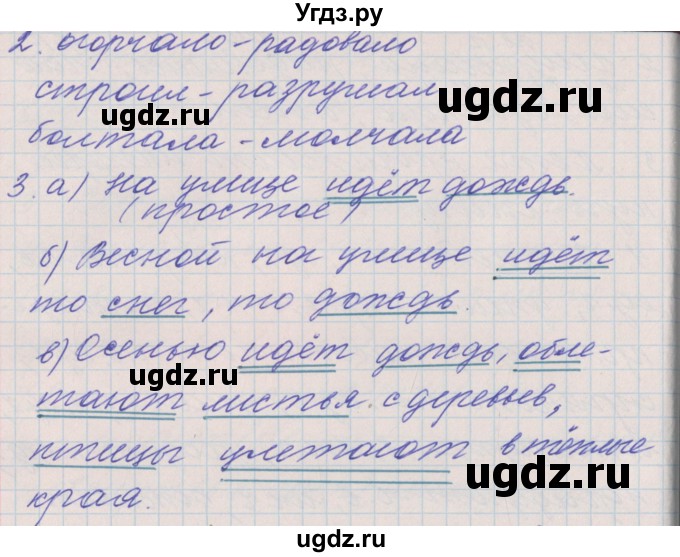 Угдз.ру
2. огорчало - радовало
строил - разрушал
ugdz.ru ugdz.ru
болтала - молчала
3. а) На улице идёт дождь.
(простое)
ugdz.ru
б) Весной на улице идёт
то снег, то дождь.
ugdz.ru
в) Осенью идёт дождь, обле-
ugdz.ru
тают листья с деревьев,
ugdz.ru
птицы улетают в тёплые
ugdz.ru
края.
ugdz.ru